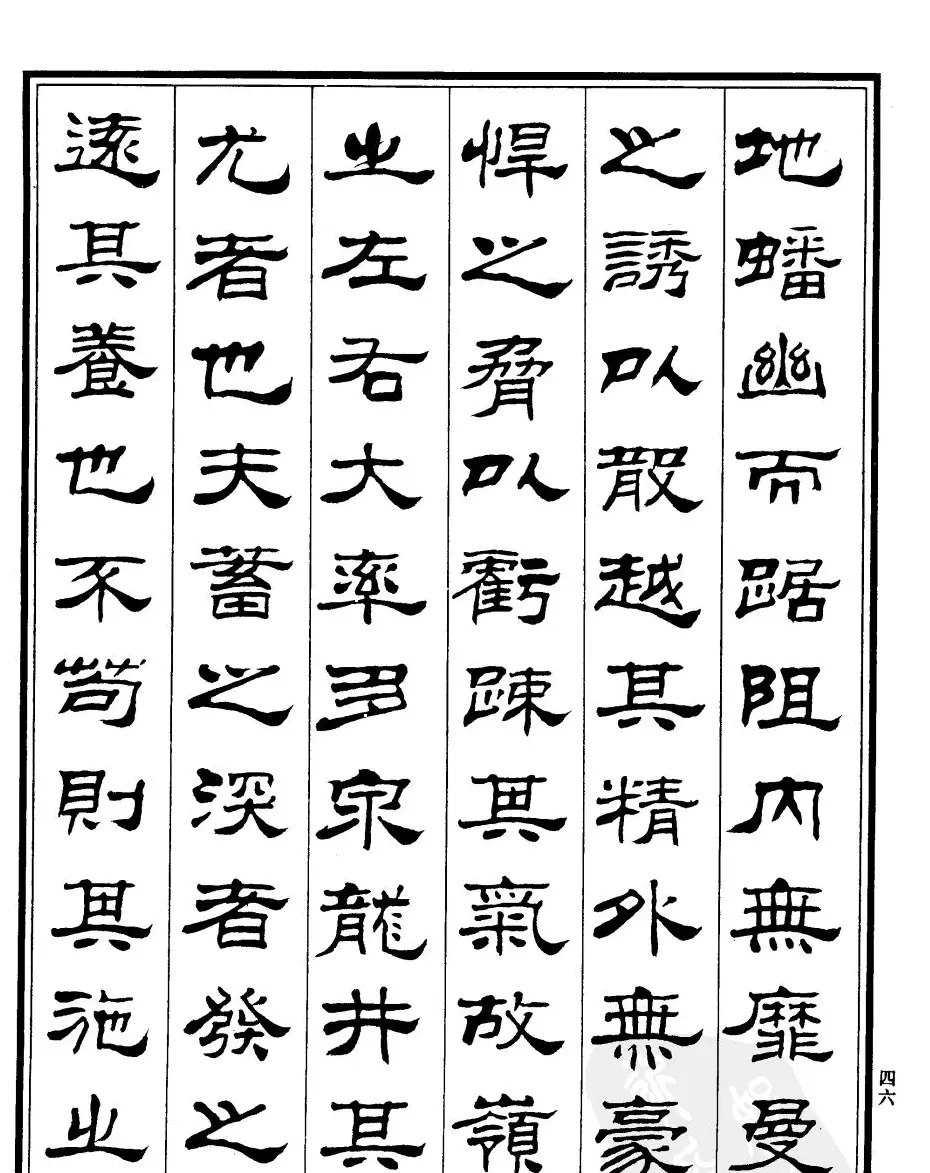 地蟠幽而踞阻内無靡曼
之誘以散越其精外無豪
悍之脅以虧疎其氣故嶺
之左右大率多泉龍井其
尤者也夫蓄之深者發之
遠其養也不苟則其施之
四六